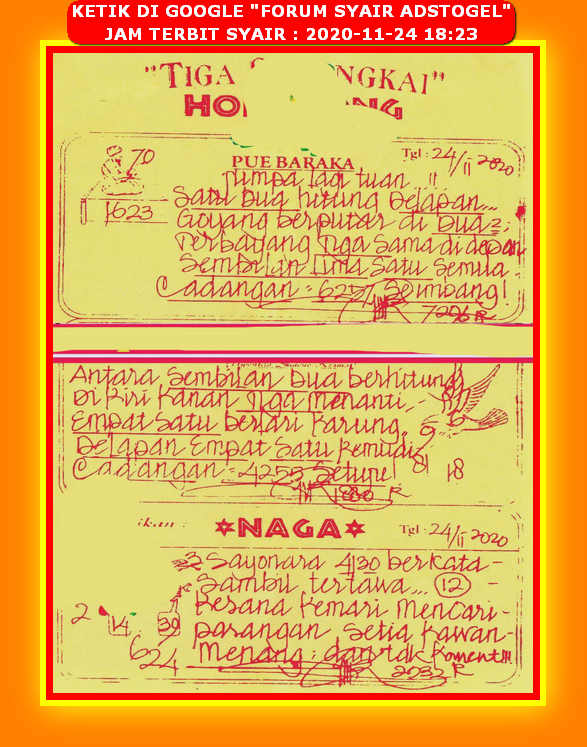 KETIK DI GOOGLE "FORUM SYAIR ADSTOGEL"
JAM TERBIT SYAIR : 2020-11-24 18:23
"TIGA NGKAI"
HO NG
70
PUE BARAKA
Tgl : 24/11 2020
Jumpa lagi tuan.. !!
1623
Satu Dua hitung Delapan...
Goyang berputar di Dua 2;
Terbayang Tiga Sama di depan
Sembilan Lima Satu Semua.
Cadangan = 6257 Seimbang!
7296 R
Antara Sembilan Dua berhitung
Di Kiri Kanan Tiga menanti,
Empat Satu berlari Karung,
Delapan Empat Satu Kemudi
Cadangan = 4255 Seture!
81 18
1880 R
ikan :
NAGA
Tgl : 24/11 2020
Sayonara 4130 berkata -
Sambil tertawa... 12 -
Kesana Kemari Mencari -
2 14 39
pasangan Setia Kawan -
624
Menang : dan tak Koment!!!
2032 R